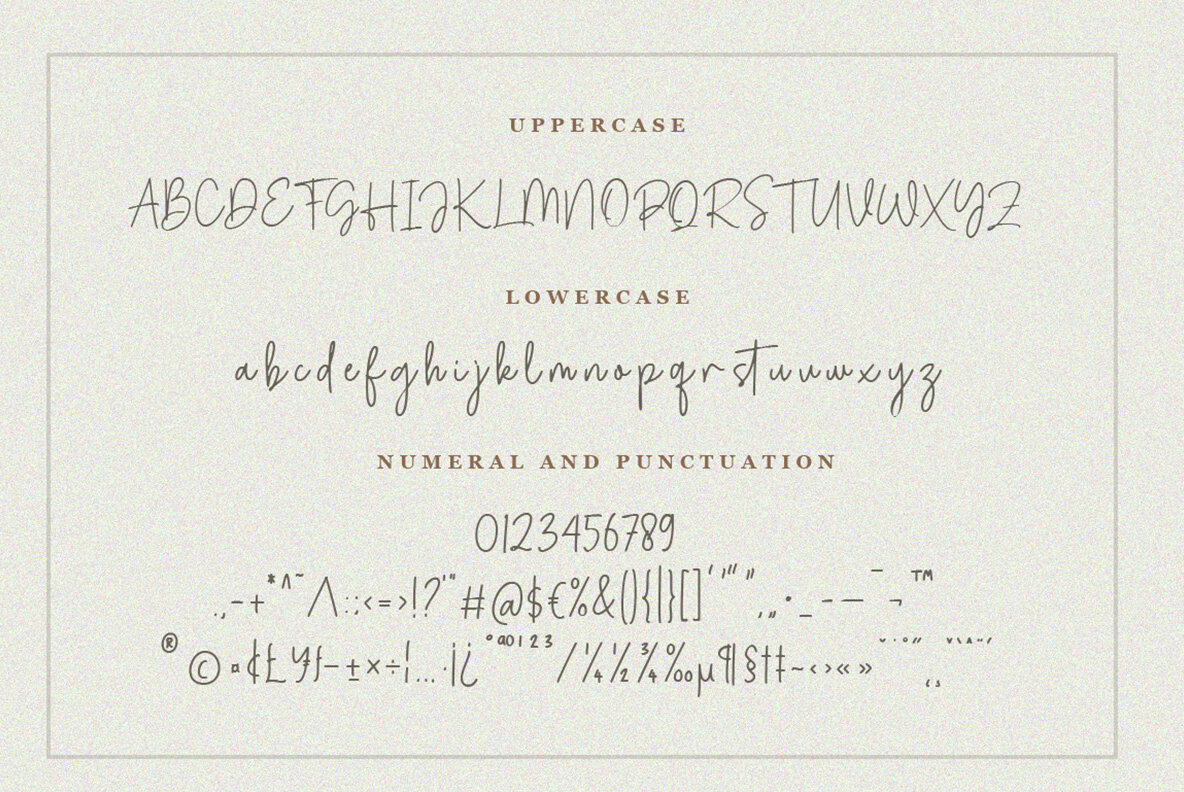 UPPERCASE
ABCDEFGHIJKLMNOPQRSTUVWXYZ
LOWERCASE
abcdefghijklmnopqrstuvwxyz
NUMERAL AND PUNCTUATION
0123456789
.,-+*^~/\:;<=>!?'"#@$€%&(){|}[]‘’“”‚„•_–—¯¬™
®©¤¢£¥ƒ−±×÷¦…·¡¿ºª0123⁄¼½¾‰µ¶§†‡~‹›«»